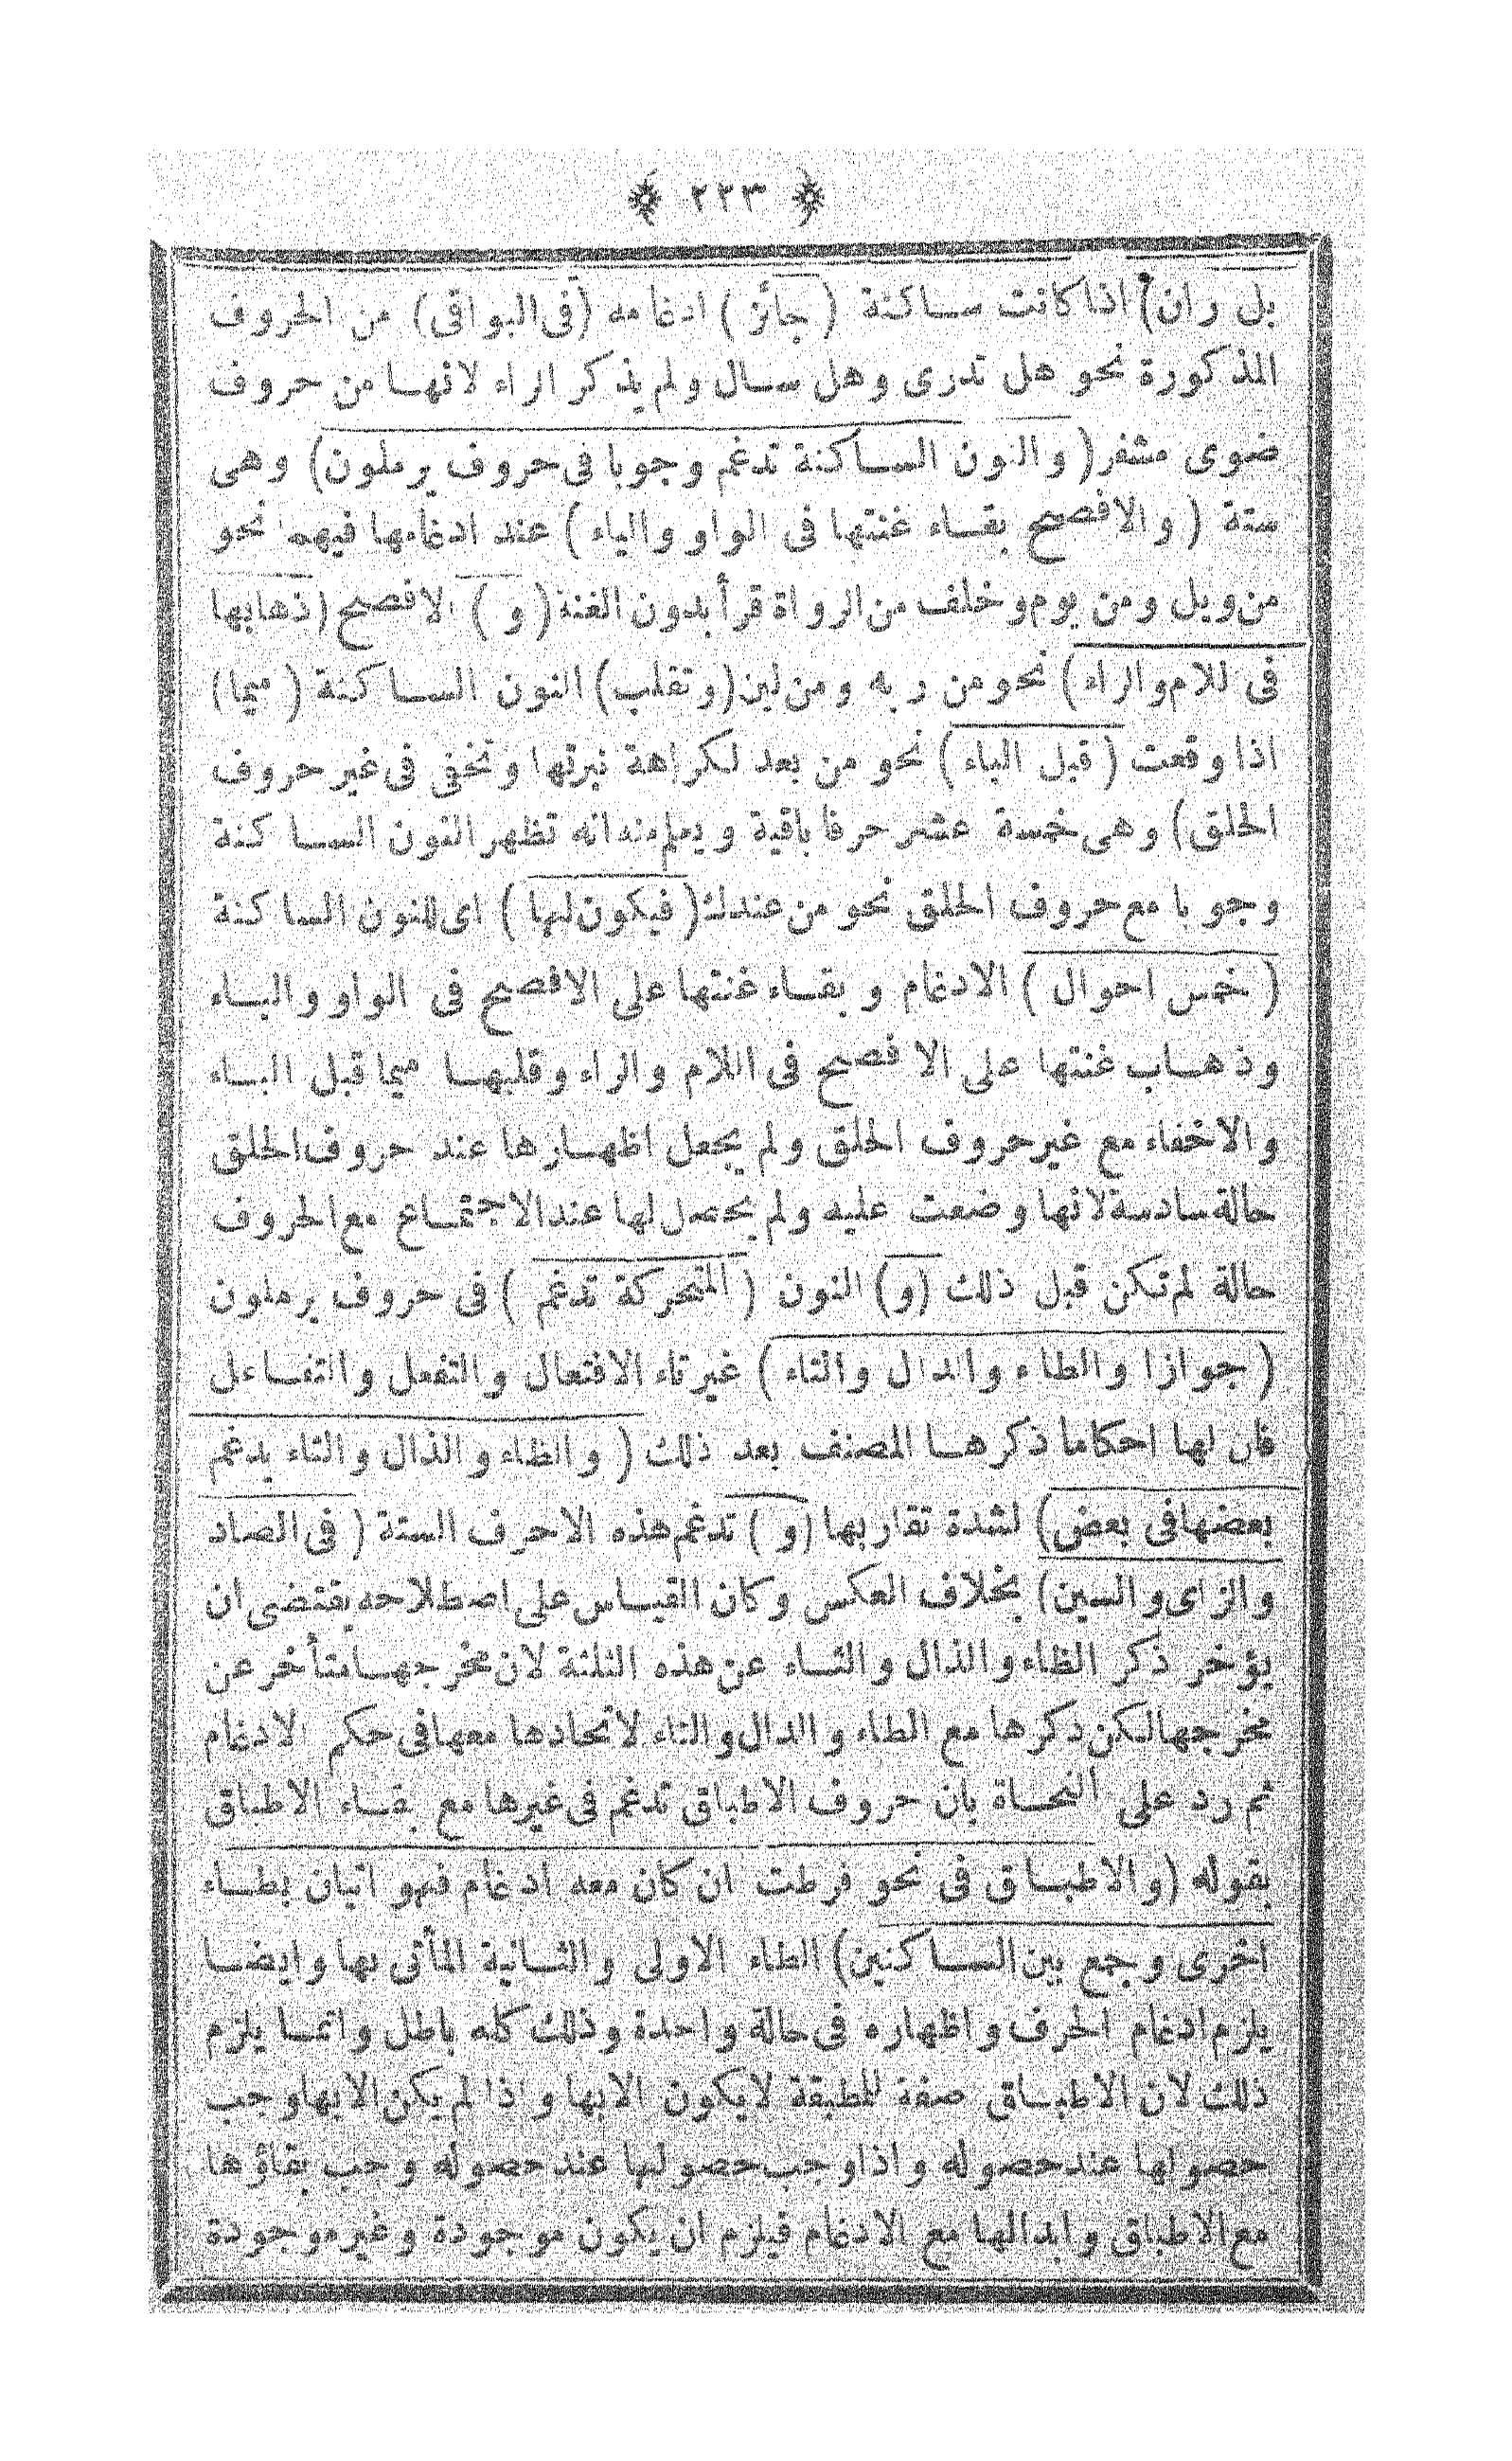 ﴿ ٢٢٣ ﴾
بل ران) اذا كانت ساكنة (جائز) ادغامه (فى البواقى) من الحروف
المذكورة نحو هل تدرى وهل سال ولم يذكر الراء لانها من حروف
ضوى مشفر (والنون الساكنة تدغم وجوبا فى حروف يرملون) وهى
ستة (والافصح بقاء غنتها فى الواو والياء) عند ادغامها فيهما نحو
من ويل ومن يوم وخلف من الرواة قرأ بدون الغنة (و) الافصح (ذهابها
فى للام والراء) نحو من ربه ومن لبن (وتقلب) النون الساكنة (ميما)
اذا وقعت (قبل الباء) نحو من بعد لكراهة نبرتها وتخفى فى غير حروف
الحلق) وهى خمسة عشر حرفا باقية ويعلم منه انه تظهر النون الساكنة
وجوبا مع حروف الحلق نحو من عندك (فيكون لها) اى للنون الساكنة
(خمس احوال) الادغام وبقاء غنتها على الافصح فى الواو والياء
وذهاب غنتها على الافصح فى اللام والراء وقلبها ميما قبل الباء
والاخفاء مع غير حروف الحلق ولم يجعل اظهارها عند حروف الحلق
حالة سادسة لانها وضعت عليه ولم يحصل لها عند الاجتماع مع الحروف
حالة لم تكن قبل ذلك (و) النون (المتحركة تدغم) فى حروف يرملون
(جوازا والطاء والدال والتاء) غير تاء الافتعال والتفعل والتفاعل
فان لها احكاما ذكرها المصنف بعد ذلك (والظاء والذال والثاء يدغم
بعضها فى بعض) لشدة تقاربها (و) تدغم هذه الاحرف الستة (فى الصاد
والزاى والسين) بخلاف العكس وكان القياس على اصطلاحه يقتضى ان
يؤخر ذكر الظاء والذال والثاء عن هذه الثلثة لان مخرجها متأخر عن
مخرجها لكن ذكرها مع الطاء والدال والتاء لاتحادها معها فى حكم الادغام
ثم رد على النحاة بان حروف الاطباق تدغم فى غيرها مع بقاء الاطباق
بقوله (والاطباق فى نحو فرطت ان كان معه ادغام فهو اتيان بطاء
اخرى وجمع بين الساكنين) الطاء الاولى والثانية المأتى بها وايضا
يلزم ادغام الحرف واظهاره فى حالة واحدة وذلك كله باطل وانما يلزم
ذلك لان الاطباق صفة للمطبقة لايكون الابها واذا لم يكن الابها وجب
حصولها عند حصوله واذا وجب حصولها عند حصوله وجب بقاؤها
مع الاطباق وابدالها مع الادغام فيلزم ان يكون موجودة وغير موجودة